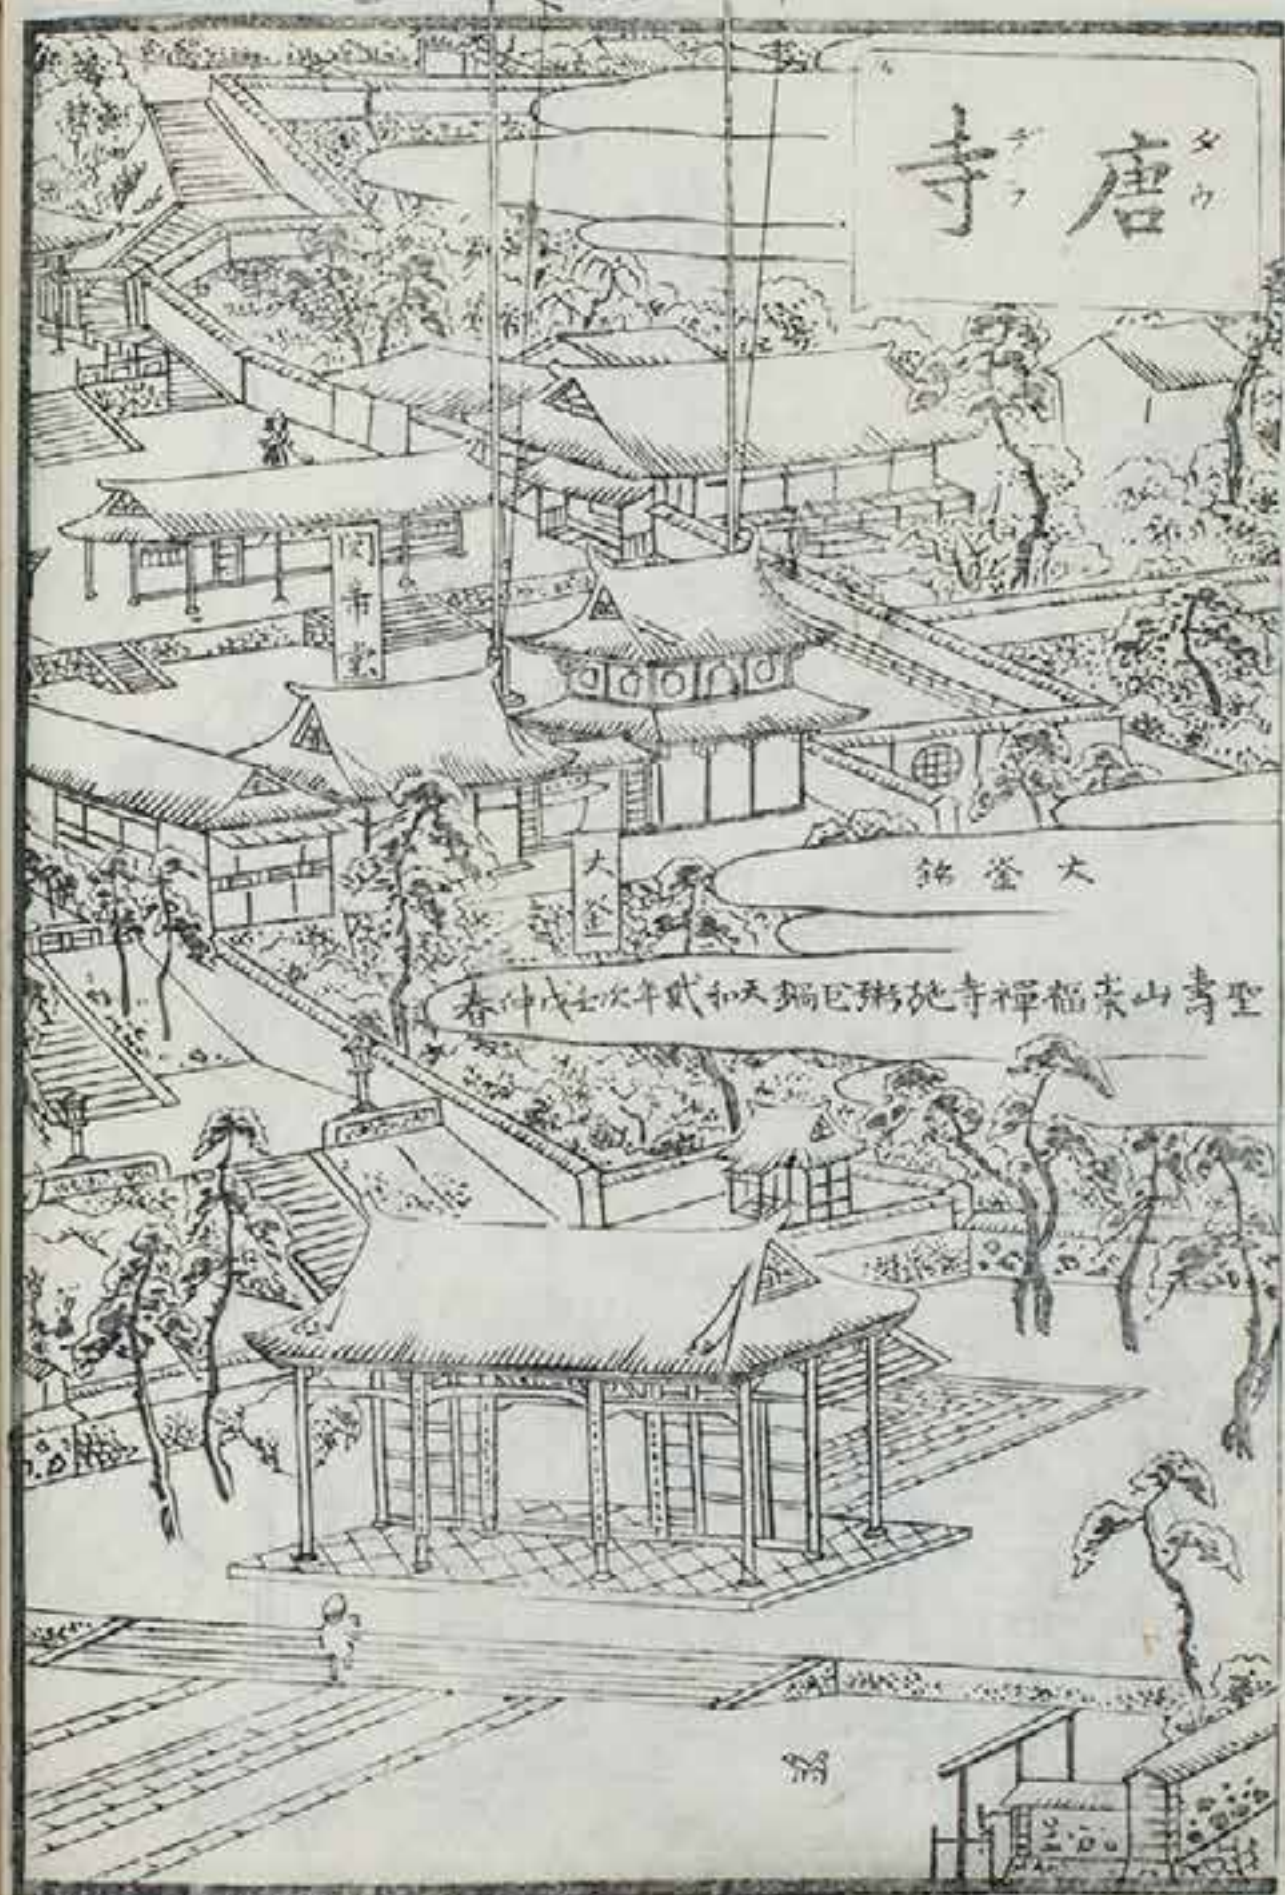 唐寺
タウ デラ
関帝堂
大釜
大釜銘
聖壽山崇福禪寺施粥巨鍋天和貳年次壬戌仲春